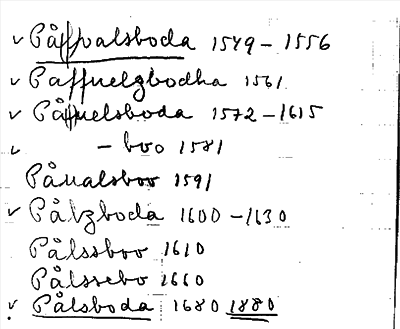 v Påffvalsboda 1549-1556
v Paffuelgbodha 1561
v Påffuelsboda 1572-1615
v - boo 1581
Påualsboo 1591
v Pålzboda 1600-1630
Pålssboo 1610
Pålssebo 1660
v. Pålsboda 1680 1880